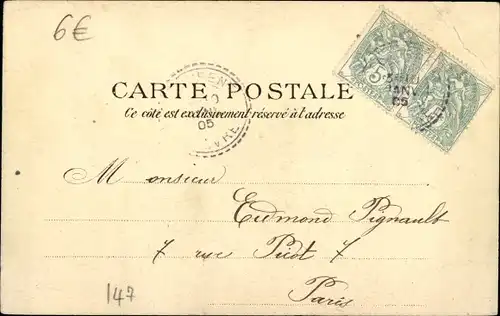 6€
CARTE POSTALE
Ce côté est exclusivement réservé à l'adresse
JANV
05
05
Monsieur
Edmond Pignault
7 rue Picot 7
Paris
147